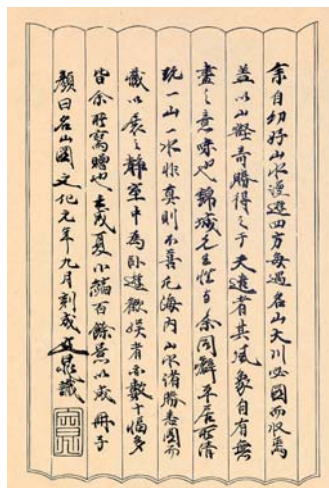 余自幼好山水漫遊四方每遇名山大川必図而收焉
蓋以山壑奇勝得之于天造者其風象自有無
畫之意味也錦城先生性与余同癖平居所清
玩一山一水非真則不喜凡海内山水諸勝悉図而
蔵以裒之静室中為卧遊歓娯者亦数十幅多
皆余所寫贈也去歳夏小縮百餘景以成冊子
顔曰名山図文化元年九月刻成文晁識